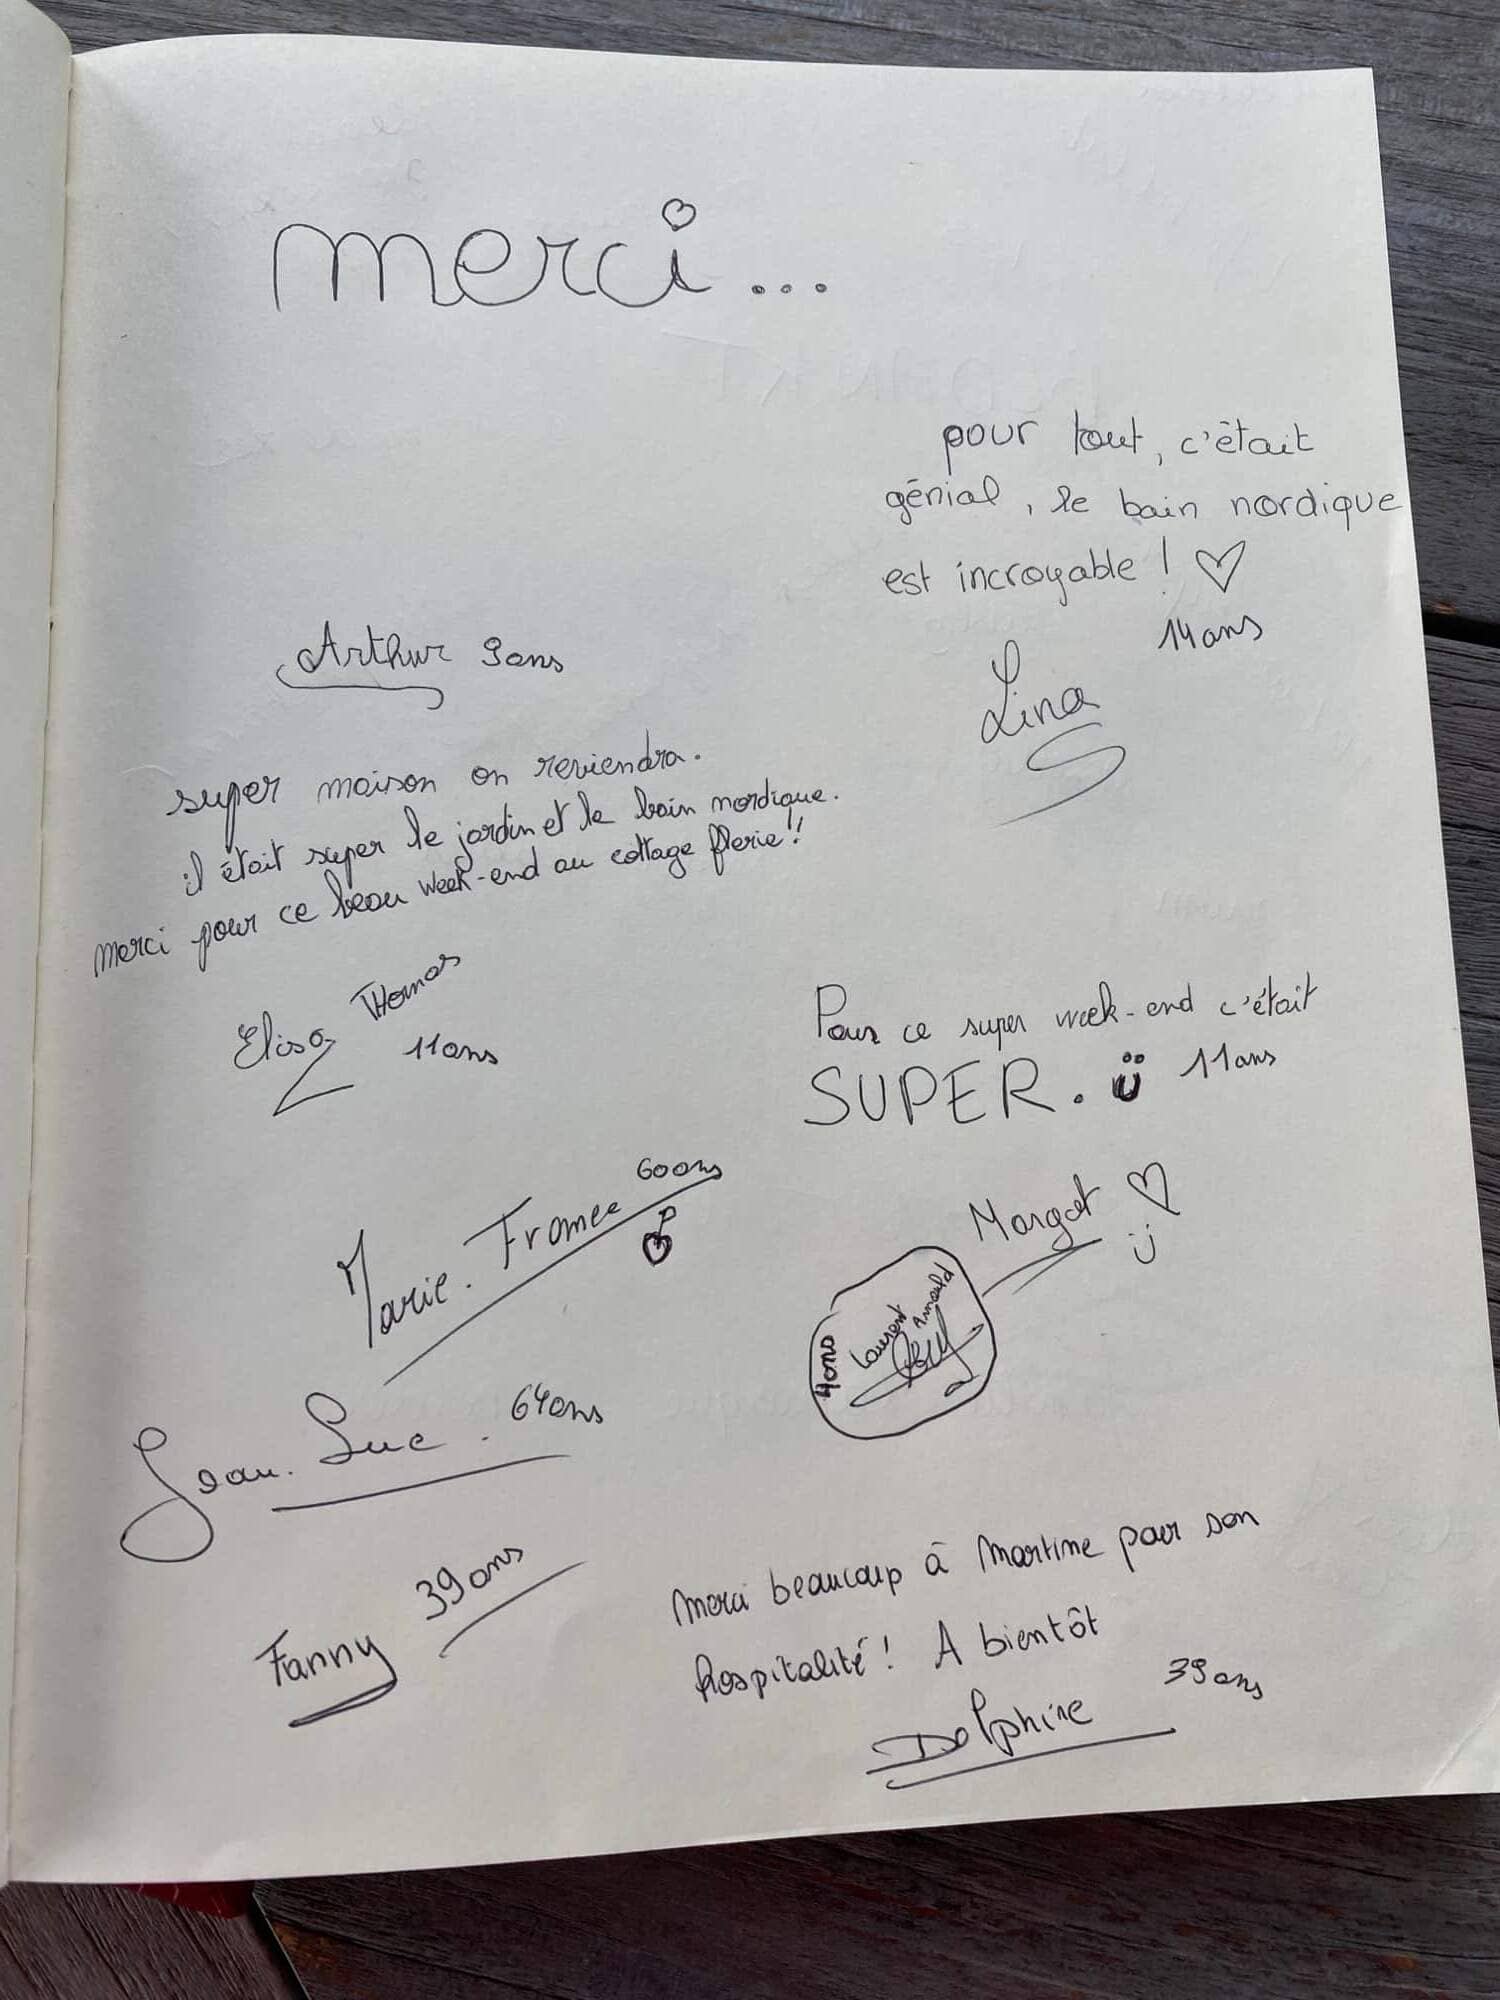 merci...
pour tout, c'était
génial, le bain nordique
est incroyable !
14 ans
Lina
Arthur 9 ans
super maison on reviendra.
il était super le jardin et le bain nordique.
merci pour ce beau week-end au cottage flerie!!
Elisa Thomas
11 ans
Pour ce super week-end c'était
SUPER. 11 ans
Margot
Marie-France 60 ans
40 ans Laurent Arnould
Jean-Luc. 64 ans
Fanny 39 ans
Merci beaucoup à Martine pour son
hospitalité! A bientôt
Delphine 39 ans